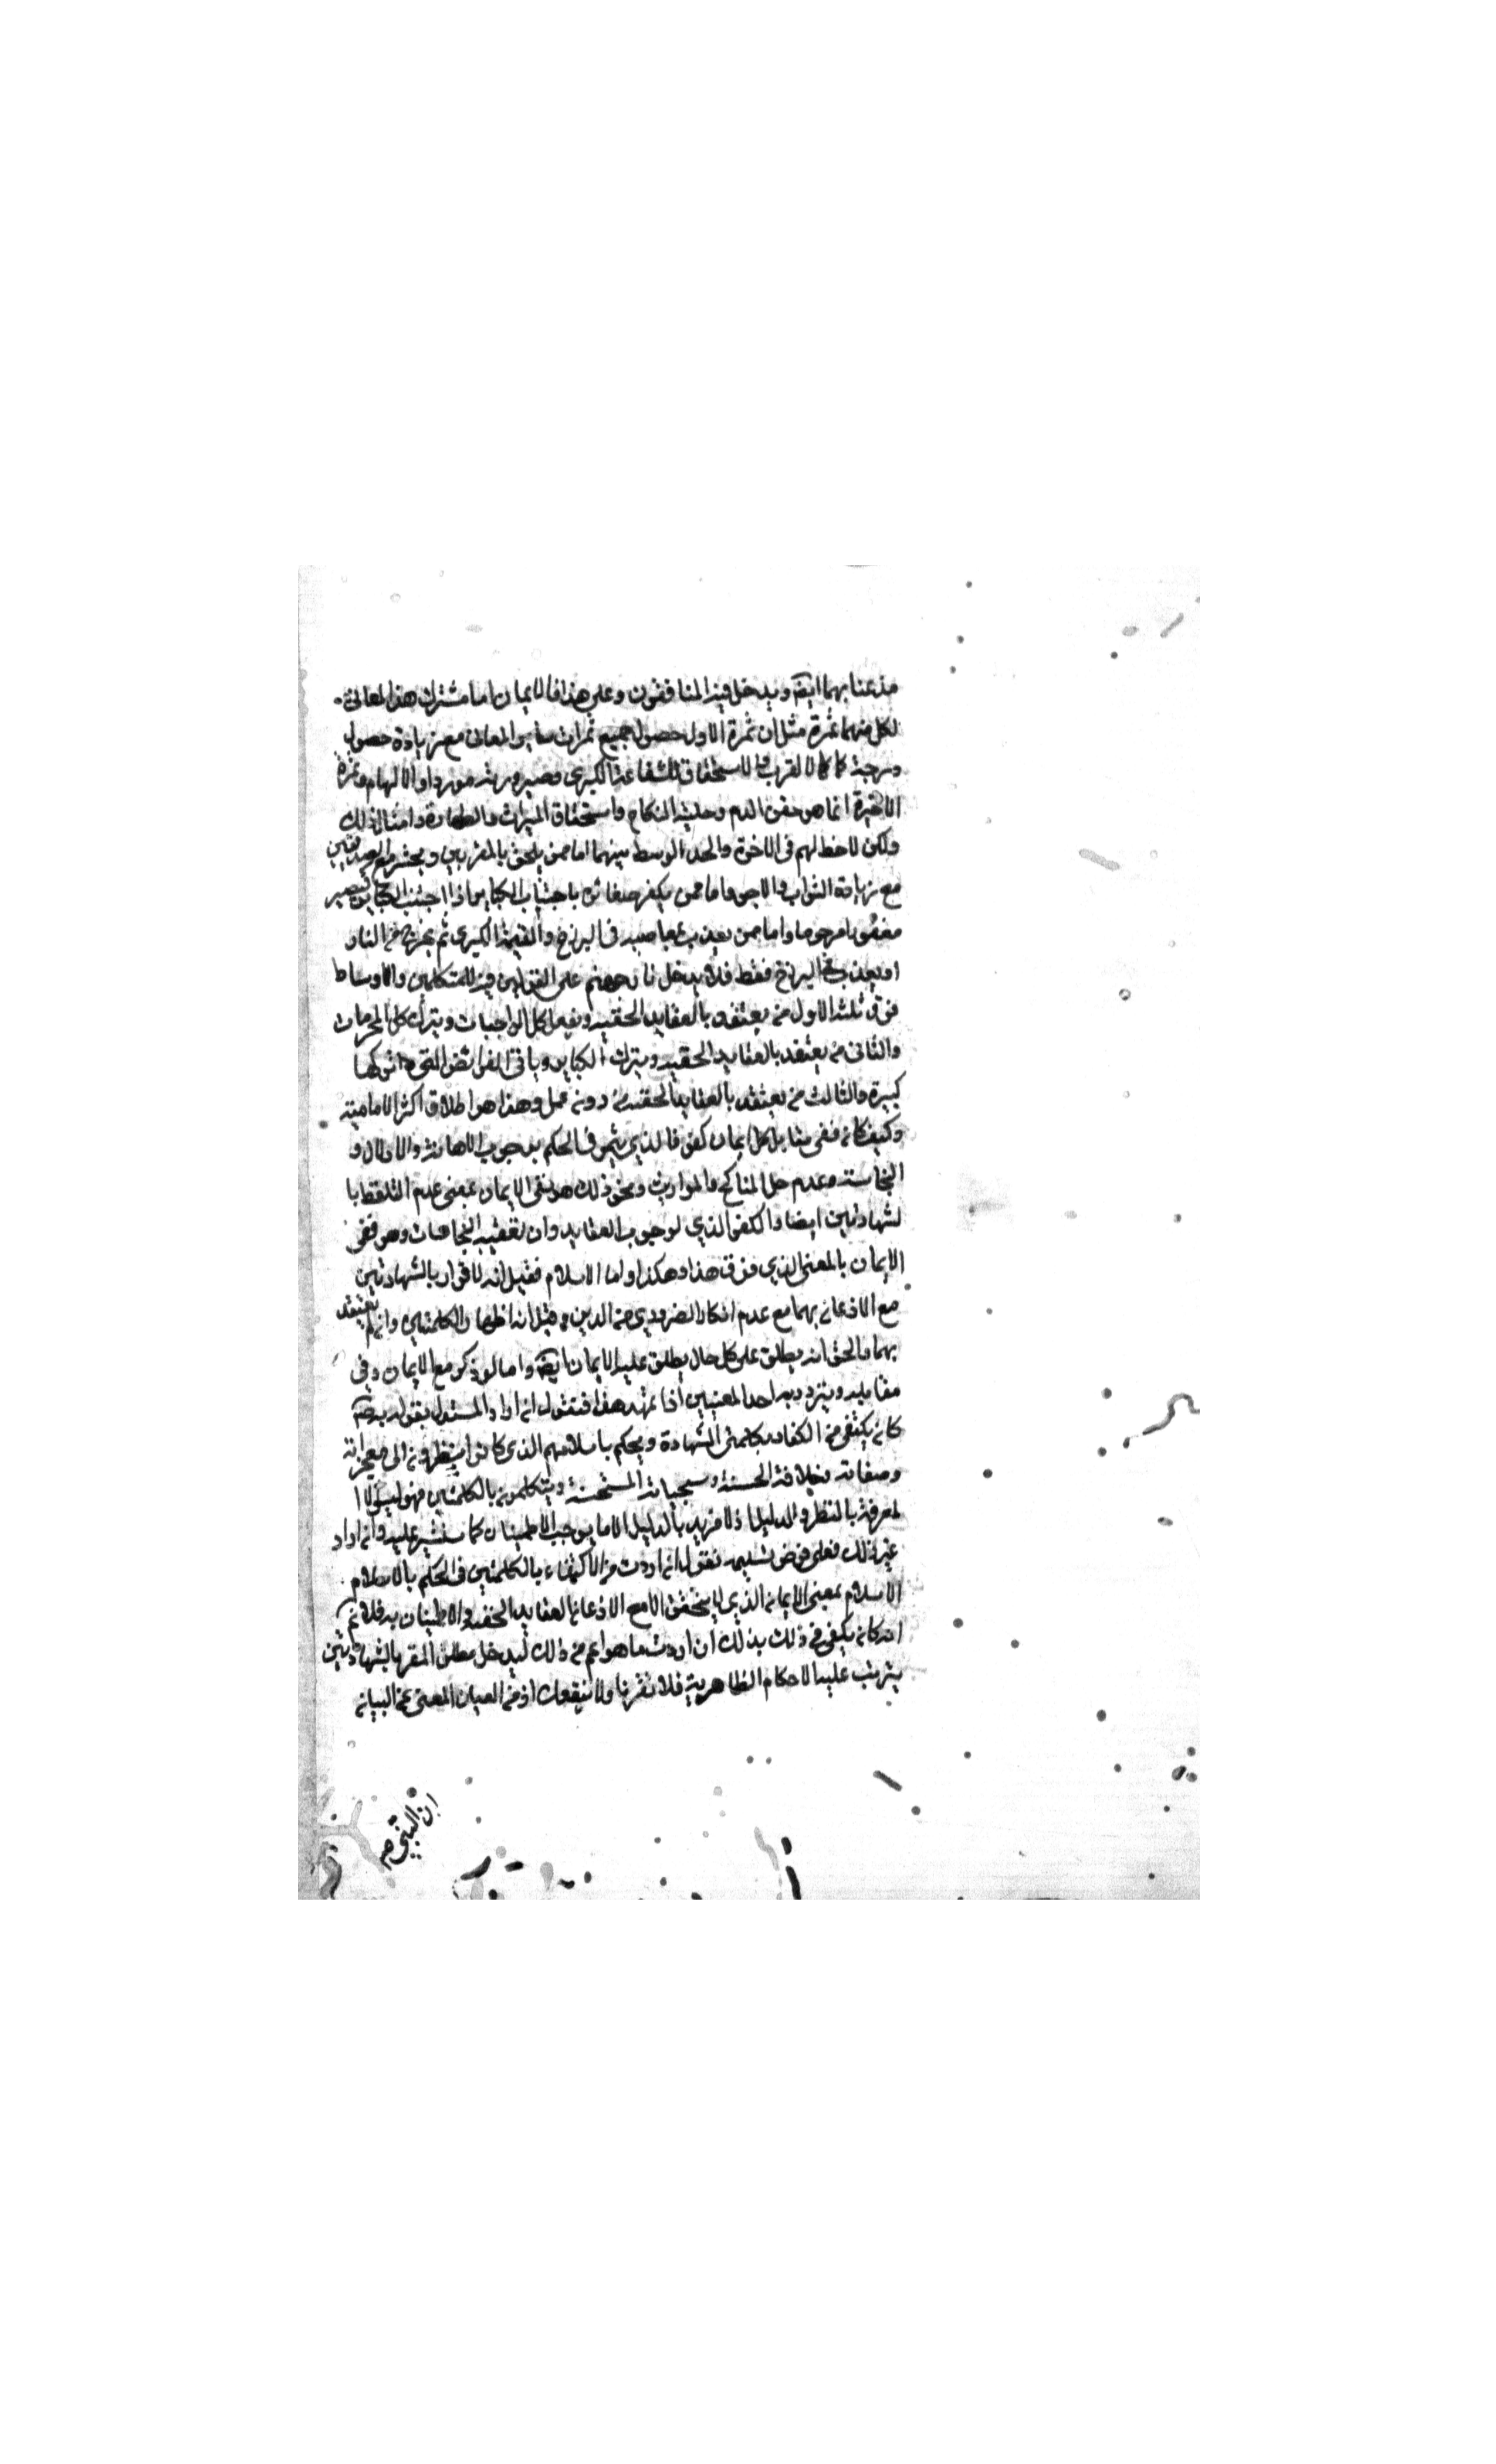 مذعنا بهما ايضا ويدخل فيه المنافقون وعلى هذا فالايمان اما مشترك هذا المعاني
لكل منهما ثمرة مثل ان ثمرة الاول حصول جميع ثمرات ساير المعاني مع زيادة حصول
درجة كمال القرب والاستحقاق للشفاعة الكبرى وصيرورته موردا والالهام وثمرة
الاخيرة انما هو حقن الدم وحلية النكاح واستحقاق الميراث والطهارة وامثال ذلك
ولكن لاحظ لهم في الاخرة والحد الوسط بينهما اما ممن يلحق بالمقربين ويحشر مع الصديقين
مع زيادة الثواب والاجر واما ممن يكفر صغائره باجتناب الكباير اذا اجتنب الكباير فيصير
مغفورا مرحوما واما ممن يعذب بمعاصيه في البرزخ والقيمة الكبرى ثم يخرج من النار
او يعذب في البرزخ فقط فلا يدخل نار جهنم على القولين فيه للمتكلمين والاوساط
فرق ثلثة الاول من يعتقد بالعقايد الحقيه ويفعل كل الواجبات ويترك كل المحرمات
والثاني من يعتقد بالعقايد الحقيه ويترك الكباير وياتي الفرائض التي تركها
كبيرة والثالث من يعتقد بالعقايد الحقيه من دون عمل وهذا هو اطلاق اكثر الامامية
وكيف كان ففي مقابل كل ايمان كفر فالذي يثمر في الحكم بوجوب الاهانة والاذلال و
النجاسة وعدم حل المناكح والمواريث ونحو ذلك هو نفي الايمان بمعنى عدم التلفظ با
لشهادتين ايضا والكفر الذي لوجوب العقايد وان تعقبه النجاة وهو فقد
الايمان بالمعنى الذي فوق هذا وهكذا واما الاسلام فقيل انه الاقرار بالشهادتين
مع الاذعان بهما مع عدم انكار الضروري من الدين وقيل انه اظهار الكلمتين وان لم يعتقد
بهما والحق انه يطلق على كل حال يطلق عليه الايمان ايضا واما لو ذكر مع الايمان وفي
مقابله ويتردد به احد المعنيين اذا تمهد هذا فنقول ان اراد المستدل بقوله
كان يكتفي من الكفار بكلمتي الشهادة ويحكم باسلامهم الذي كانوا ينظرون الى معجزاته
وصفاته الحسنة وسجياته المستحسنة ويتكلمون بالكلمتين فهو ليس الا
لمعرفة بالنظر والدليل اذ لا نريد بالدليل الا ما يوجب الاطمينان كما سنشير عليه وان اراد
غير ذلك فعلى فرض تسليمه نقول ان اردت من الاكتفاء بالكلمتين في الحكم بالاسلام
الاسلام بمعنى الايمان الذي لا يتحقق الا مع الاذعان بالعقايد الحقه والاطمينان به فلا نم
انه كان يكفي في ذلك بذلك ان اردت ما هو اعم من ذلك ليدخل مطلق المقر بالشهادتين
يترتب عليه الاحكام الظاهرية فلا تضرنا ولا ينفعك اذ من العيان المغني عن البيان
ان النبي ص